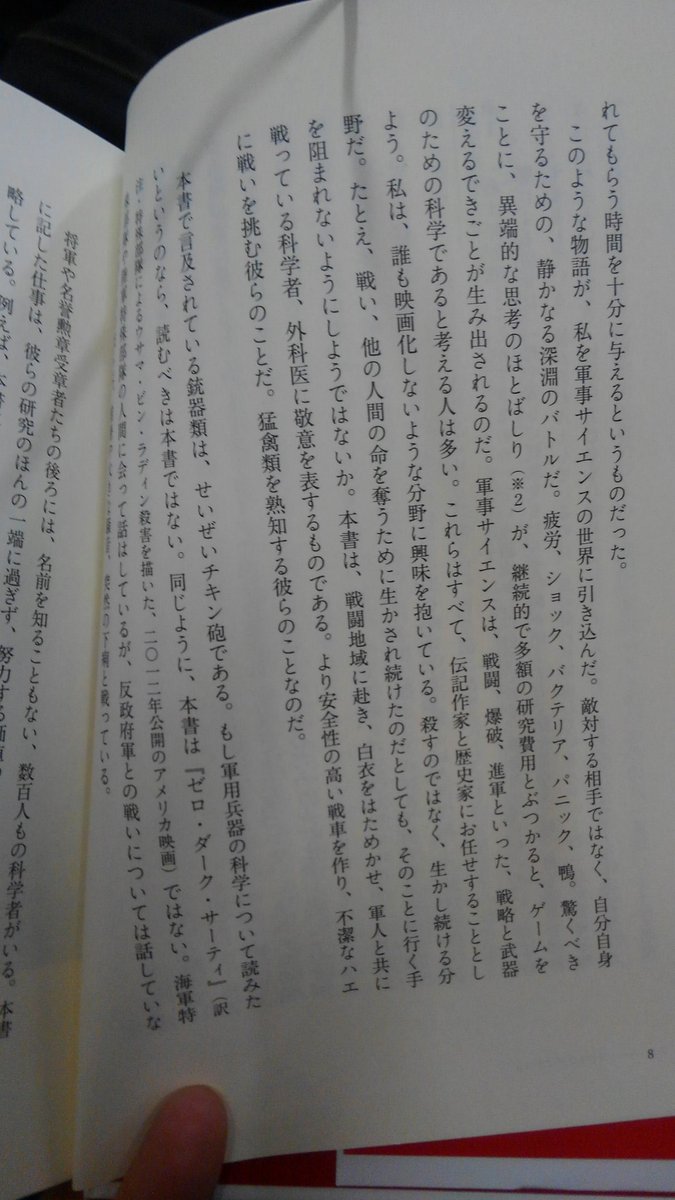 れてもらう時間を十分に与えるというものだった。
このような物語が、私を軍事サイエンスの世界に引き込んだ。敵対する相手ではなく、自分自身
を守るための、静かなる深淵のバトルだ。疲労、ショック、バクテリア、パニック、鴨。驚くべき
ことに、異端的な思考のほとばしり(※2)が、継続的で多額の研究費用とぶつかると、ゲームを
変えるできごとが生み出されるのだ。軍事サイエンスは、戦闘、爆破、進軍といった、戦略と武器
のための科学であると考える人は多い。これらはすべて、伝記作家と歴史家にお任せすることとし
よう。私は、誰も映画化しないような分野に興味を抱いている。殺すのではなく、生かし続ける分
野だ。たとえ、戦い、他の人間の命を奪うために生かされ続けたのだとしても、そのことに行く手
を阻まれないようにしようではないか。本書は、戦闘地域に赴き、白衣をはためかせ、軍人と共に
戦っている科学者、外科医に敬意を表するものである。より安全性の高い戦車を作り、不潔なハエ
に戦いを挑む彼らのことだ。猛禽類を熟知する彼らのことなのだ。
本書で言及されている銃器類は、せいぜいチキン砲である。もし軍用兵器の科学について読みた
いというのなら、読むべきは本書ではない。同じように、本書は『ゼロ・ダーク・サーティ』(訳
・特殊部隊によるウサマ・ビン・ラディン殺害を描いた、二〇一二年公開のアメリカ映画)ではない。海軍特
部隊の人間に会って話はしているが、反政府軍との戦いについては話していな
突然の下痢と戦っている。
将軍や名誉勲章受章者たちの後ろには、名前を知ることもない、数百人もの科学者がいる。本書
に記した仕事は、彼らの研究のほんの一端に過ぎず、努力する
略している。例えば、本書
8